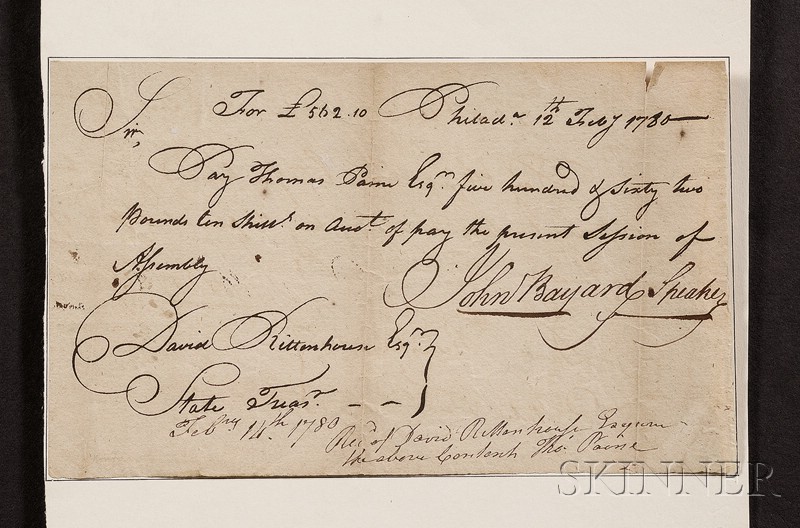 For £562.10 Philada. 12th Feby 1780
Sir,
Pay Thomas Paine Esqr. five hundred & sixty two
pounds ten shills. on Acct. of pay the present Session of
Assembly
John Bayard Speaker
David Rittenhouse Esqr.
State Treasr.
Febry 14th 1780
Recd of David Rittenhouse Esquire
the above Contents Thos Paine
SKINNER